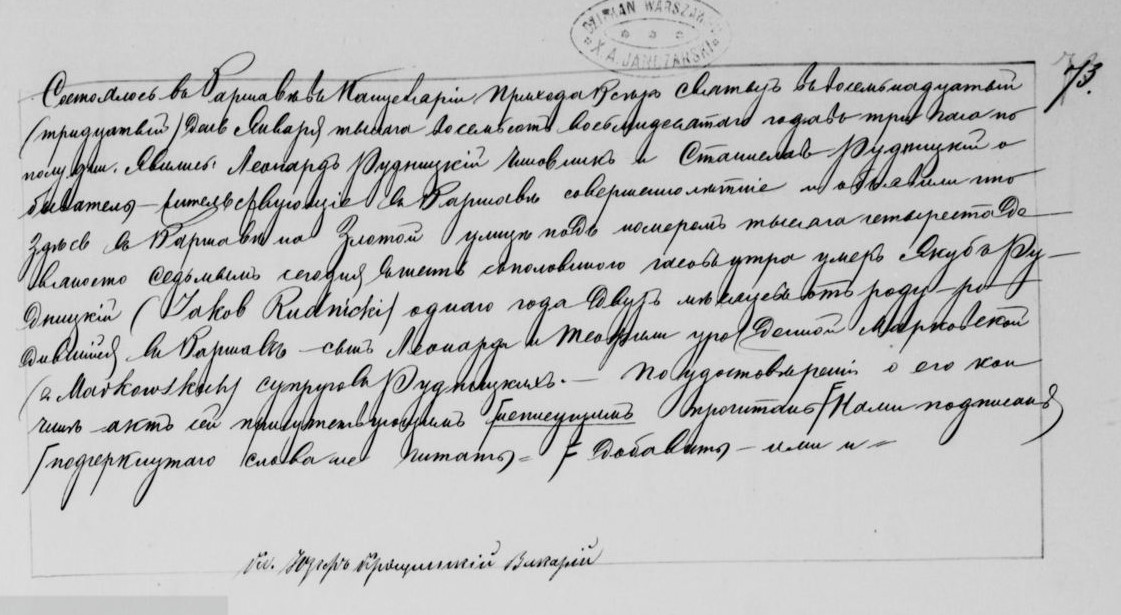 DZIEKAN WARSZAWSKI
X. A. JANCZARSKI
73.
Состоялось въ Варшавѣ въ Канцеляріи Прихода Всѣхъ Святыхъ въ восемьнадцатый
(тридцатый) день Января тысяча восемьсотъ восьмидесятаго года въ три часа по
полудни. Явились: Леонардъ Рудницкій чиновникъ и Станиславъ Рудницкій о
быватель – жительствующіе въ Варшавѣ совершеннолѣтніе и объявили что
здѣсь въ Варшавѣ на Злотой улицѣ подъ номеромъ тысяча четыреста де
вяносто седьмымъ сегодня въ шесть съ половиною часовъ утра умеръ Якубъ Ру–
дницкій (Jakób Rudnicki) одного года двухъ мѣсяцевъ отъ роду – ро
дившійся въ Варшавѣ – сынъ Леонарда и Теофили урожденной Марковской
(z Markowskich) супруговъ Рудницкихъ. – По удостовѣреніи о его кон
чинѣ актъ сей присутствующимъ неписущимъ прочитанъ Нами подписанъ
подчеркнутаго слова не читать = добавить – ими и =
Кс. Викарій